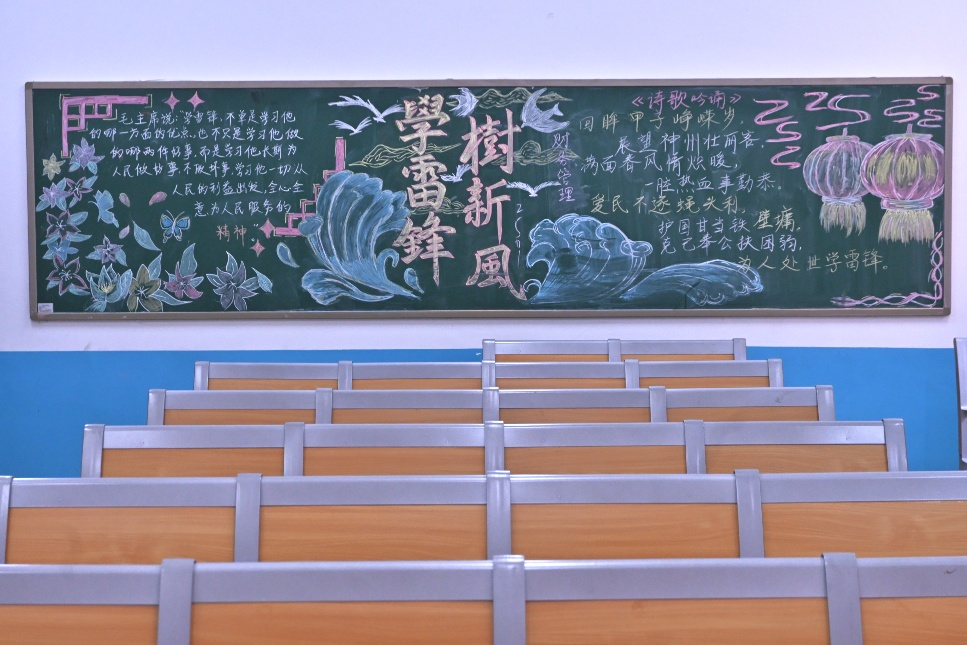 毛主席说：学雷锋，不单是学习他
的哪一方面的优点，也不只是学习他做
的哪两件好事，而是学习他长期为
人民做好事不做坏事，学习他一切从
人民的利益出发，全心全
意为人民服务的
精神。
學雷鋒
樹新風
财务管理
《诗歌吟诵》
回眸甲子峥嵘岁，
展望神州壮丽容，
满面春风情燃暖，
一腔热血事勤恭。
爱民不逐蝇头利，
护国甘当铁壁墉。
克己奉公扶困穷，
为人处世学雷锋。